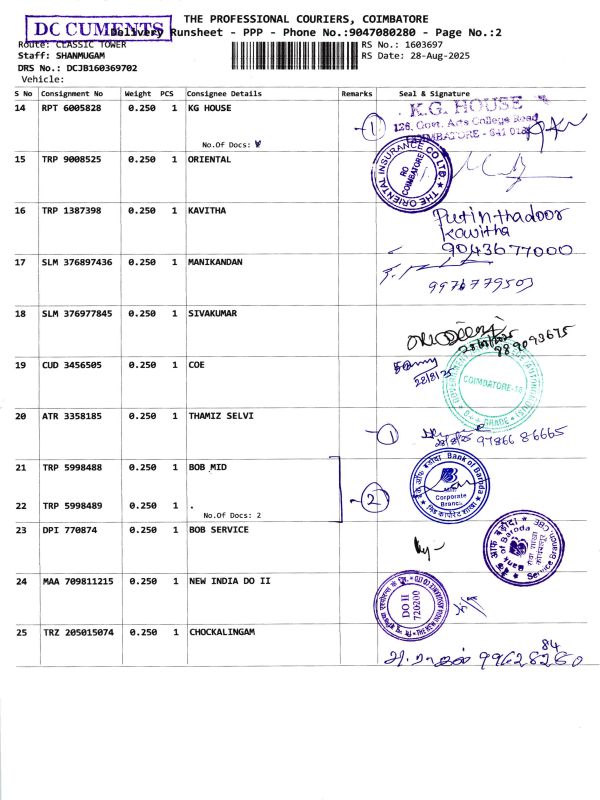 THE PROFESSIONAL COURIERS, COIMBATORE
DC CUMENTS
Delivery Runsheet - PPP - Phone No.:9047080280 - Page No.:2
Route: CLASSIC TOWER
RS No.: 1603697
Staff: SHANMUGAM
RS Date: 28-Aug-2025
DRS No.: DCJB160369702
Vehicle:
S No Consignment No Weight PCS Consignee Details Remarks Seal & Signature
14 RPT 6005828 0.250 1 KG HOUSE
K.G. HOUSE
126, Govt. Arts College Road
COIMBATORE - 641 018
No.Of Docs:
1
15 TRP 9008525 0.250 1 ORIENTAL
THE ORIENTAL INSURANCE CO LTD.
RO
COIMBATORE
16 TRP 1387398 0.250 1 KAVITHA
Kavitha
9043677000
17 SLM 376897436 0.250 1 MANIKANDAN
9976779503
18 SLM 376977845 0.250 1 SIVAKUMAR
28/08/2025
9889093675
19 CUD 3456505 0.250 1 COE
28/8/25
COIMBATORE-18
GRADE
20 ATR 3358185 0.250 1 THAMIZ SELVI
1
28/8/25 97866 86665
21 TRP 5998488 0.250 1 BOB MID
बैंक ऑफ बड़ौदा Bank of Baroda
Corporate
Branch
2
22 TRP 5998489 0.250 1 .
No.Of Docs: 2
23 DPI 770874 0.250 1 BOB SERVICE
बैंक ऑफ बड़ौदा
Bank of Baroda
Service Branch, CBE
24 MAA 709811215 0.250 1 NEW INDIA DO II
DO II
720200
25 TRZ 205015074 0.250 1 CHOCKALINGAM
84
9962828260